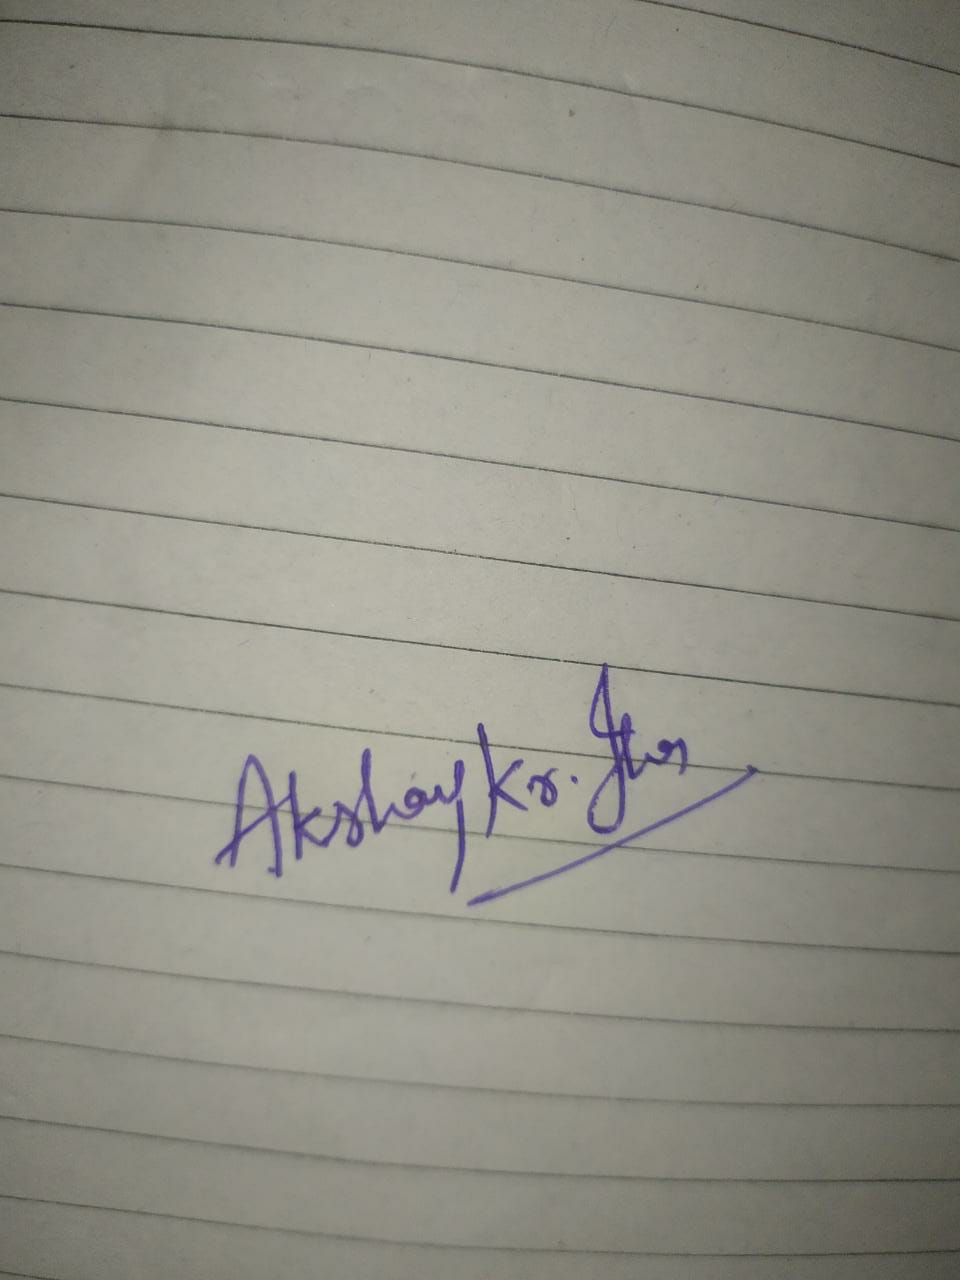 Akshay Kr. Jha